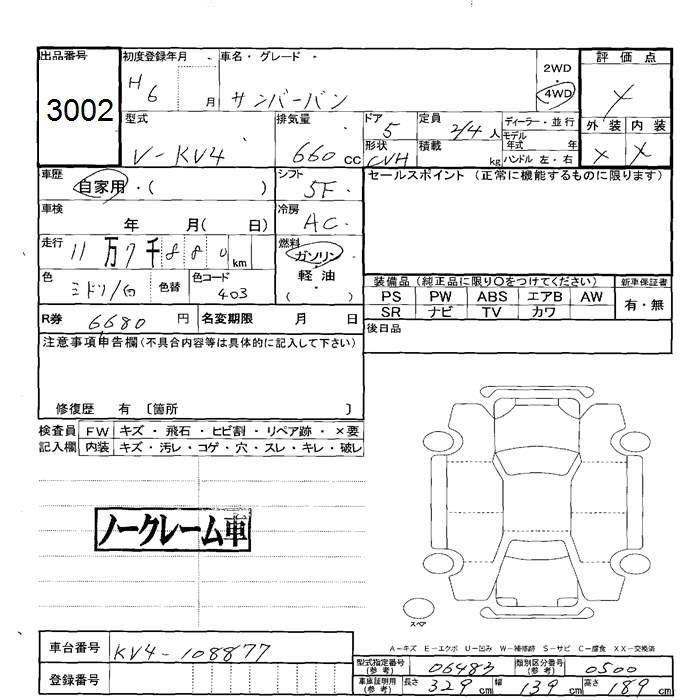 出品番号
3002
初度登録年月
H6 月
車名・グレード
サンバーバン
2WD
4WD
評価点
外装 内装
× ×
型式
V-KV4
排気量
660cc
ドア
5
定員
2/4人
形状
CVH
積載
kg
ディーラー・並行
モデル年式 年
ハンドル 左・右
車歴
自家用・( )
シフト
5F
セールスポイント (正常に機能するものに限ります)
車検
年 月( 日)
冷房
AC
走行
11万7千880km
燃料
ガソリン
軽油
( )
色
ミドリ/白
色替
色コード
403
装備品 (純正品に限り○をつけてください)
新車保証書
PS PW ABS エアB AW
SR ナビ TV カワ
有・無
R券 6680円
名変期限 月 日
後日品
注意事項申告欄(不具合内容等は具体的に記入して下さい)
修復歴 有 〔箇所 〕
検査員記入欄
FW キズ・飛石・ヒビ割・リペア跡・×要
内装 キズ・汚レ・コゲ・穴・スレ・キレ・破レ
ノークレーム車
スペア
A−キズ E−エクボ U−凹み W−補修跡 S−サビ C−腐食 XX−交換済
車台番号 KV4-108877
登録番号
型式指定番号(参考) 06483
類別区分番号(参考) 0500
車庫証明用(参考) 長さ 329cm 幅 139cm 高さ 189cm